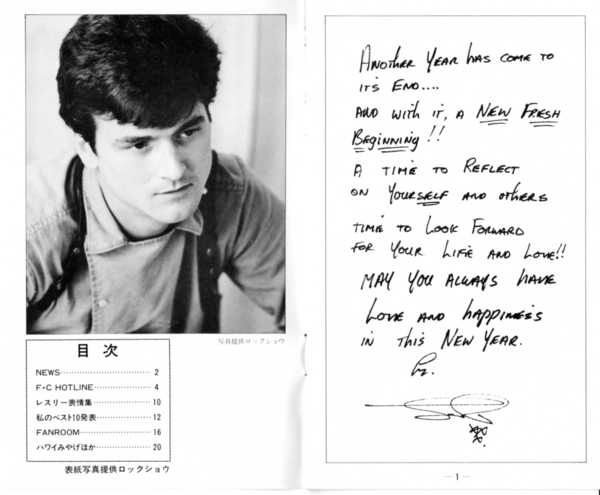 写真提供ロックショウ
目次
NEWS 2
F・C HOTLINE 4
レスリー表情集 10
私のベスト10発表 12
FANROOM 16
ハワイみやげほか 20
表紙写真提供ロックショウ
ANOTHER YEAR HAS COME TO
IT'S END....
AND WITH IT, A NEW FRESH
BEGINNING!!
A TIME TO REFLECT
ON YOURSELF AND OTHERS
TIME TO LOOK FORWARD
FOR YOUR LIFE AND LOVE!!
MAY YOU ALWAYS HAVE
LOVE AND HAPPINESS
IN THIS NEW YEAR.
—1—